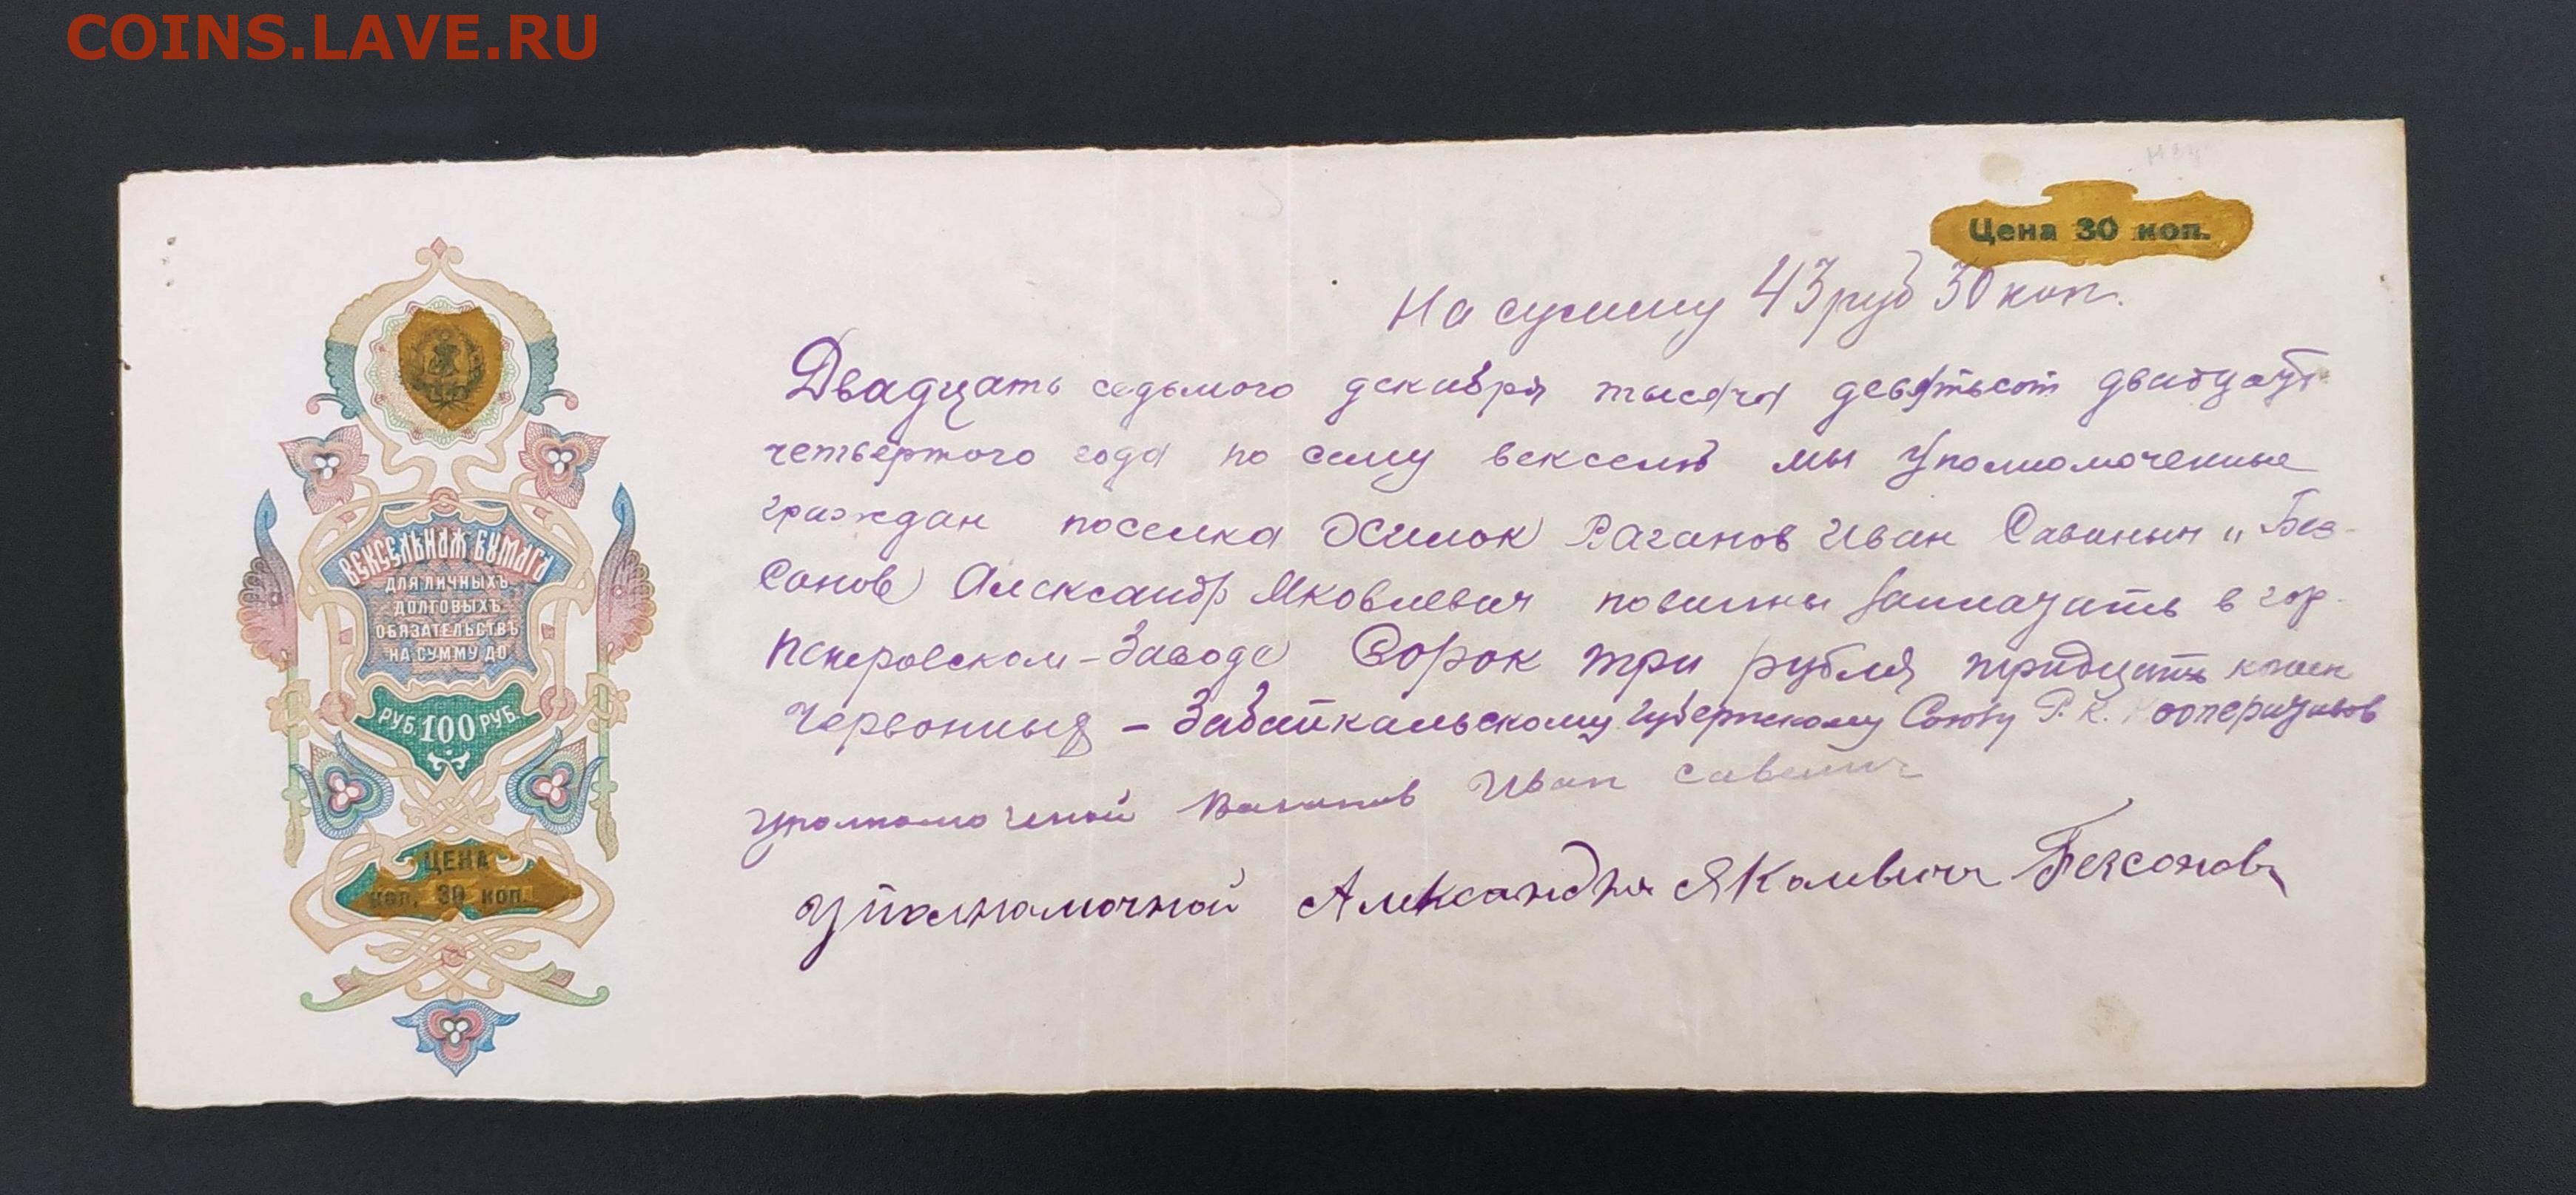 COINS.LAVE.RU
Цена 30 коп.
На сумму 43 руб 30 коп.
Двадцать седьмого декабря тысяча девятьсот двадцать
четвертого года по сему векселю мы Уполномоченные
граждан поселка Ваганов Иван Савиныч „Без-
сонов Александр Яковлевич повинны заплатить в гор.
Петровском-Заводе Сорок три рубля тридцать копеек
Червонных - Забайкальскому Губернскому Союзу Р. К. Кооперативов
Ваганов Иван
уполномочной Александр Безсонов
ВЕКСЕЛЬНАЯ БУМАГА
ДЛЯ ЛИЧНЫХЪ
ДОЛГОВЫХЪ
ОБЯЗАТЕЛЬСТВЪ
НА СУММУ ДО
РУБ. 100 РУБ.
ЦЕНА
коп. 30 коп.